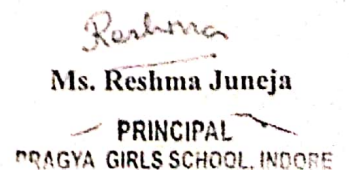 Reshma
Ms. Reshma Juneja
PRINCIPAL
PRAGYA GIRLS SCHOOL, INDORE